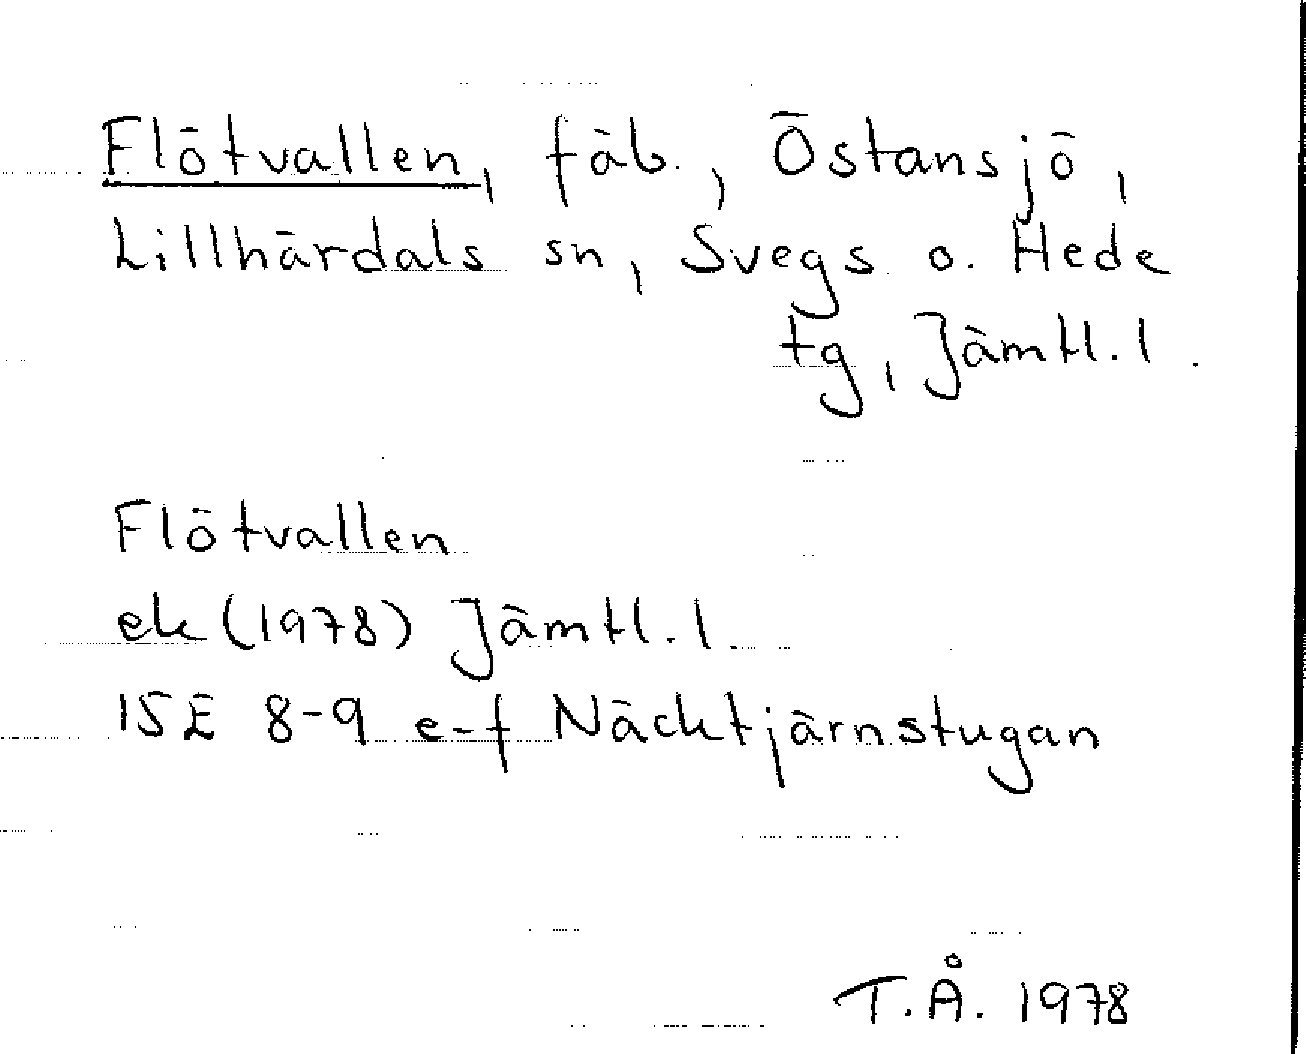 Flötvallen, fäb., Östansjö,
Lillhärdals sn, Svegs o. Hede
tg, Jämtl. l.
Flötvallen
ek (1978) Jämtl. l
15E 8-9 e-f Näcktjärnstugan
T.Å. 1978